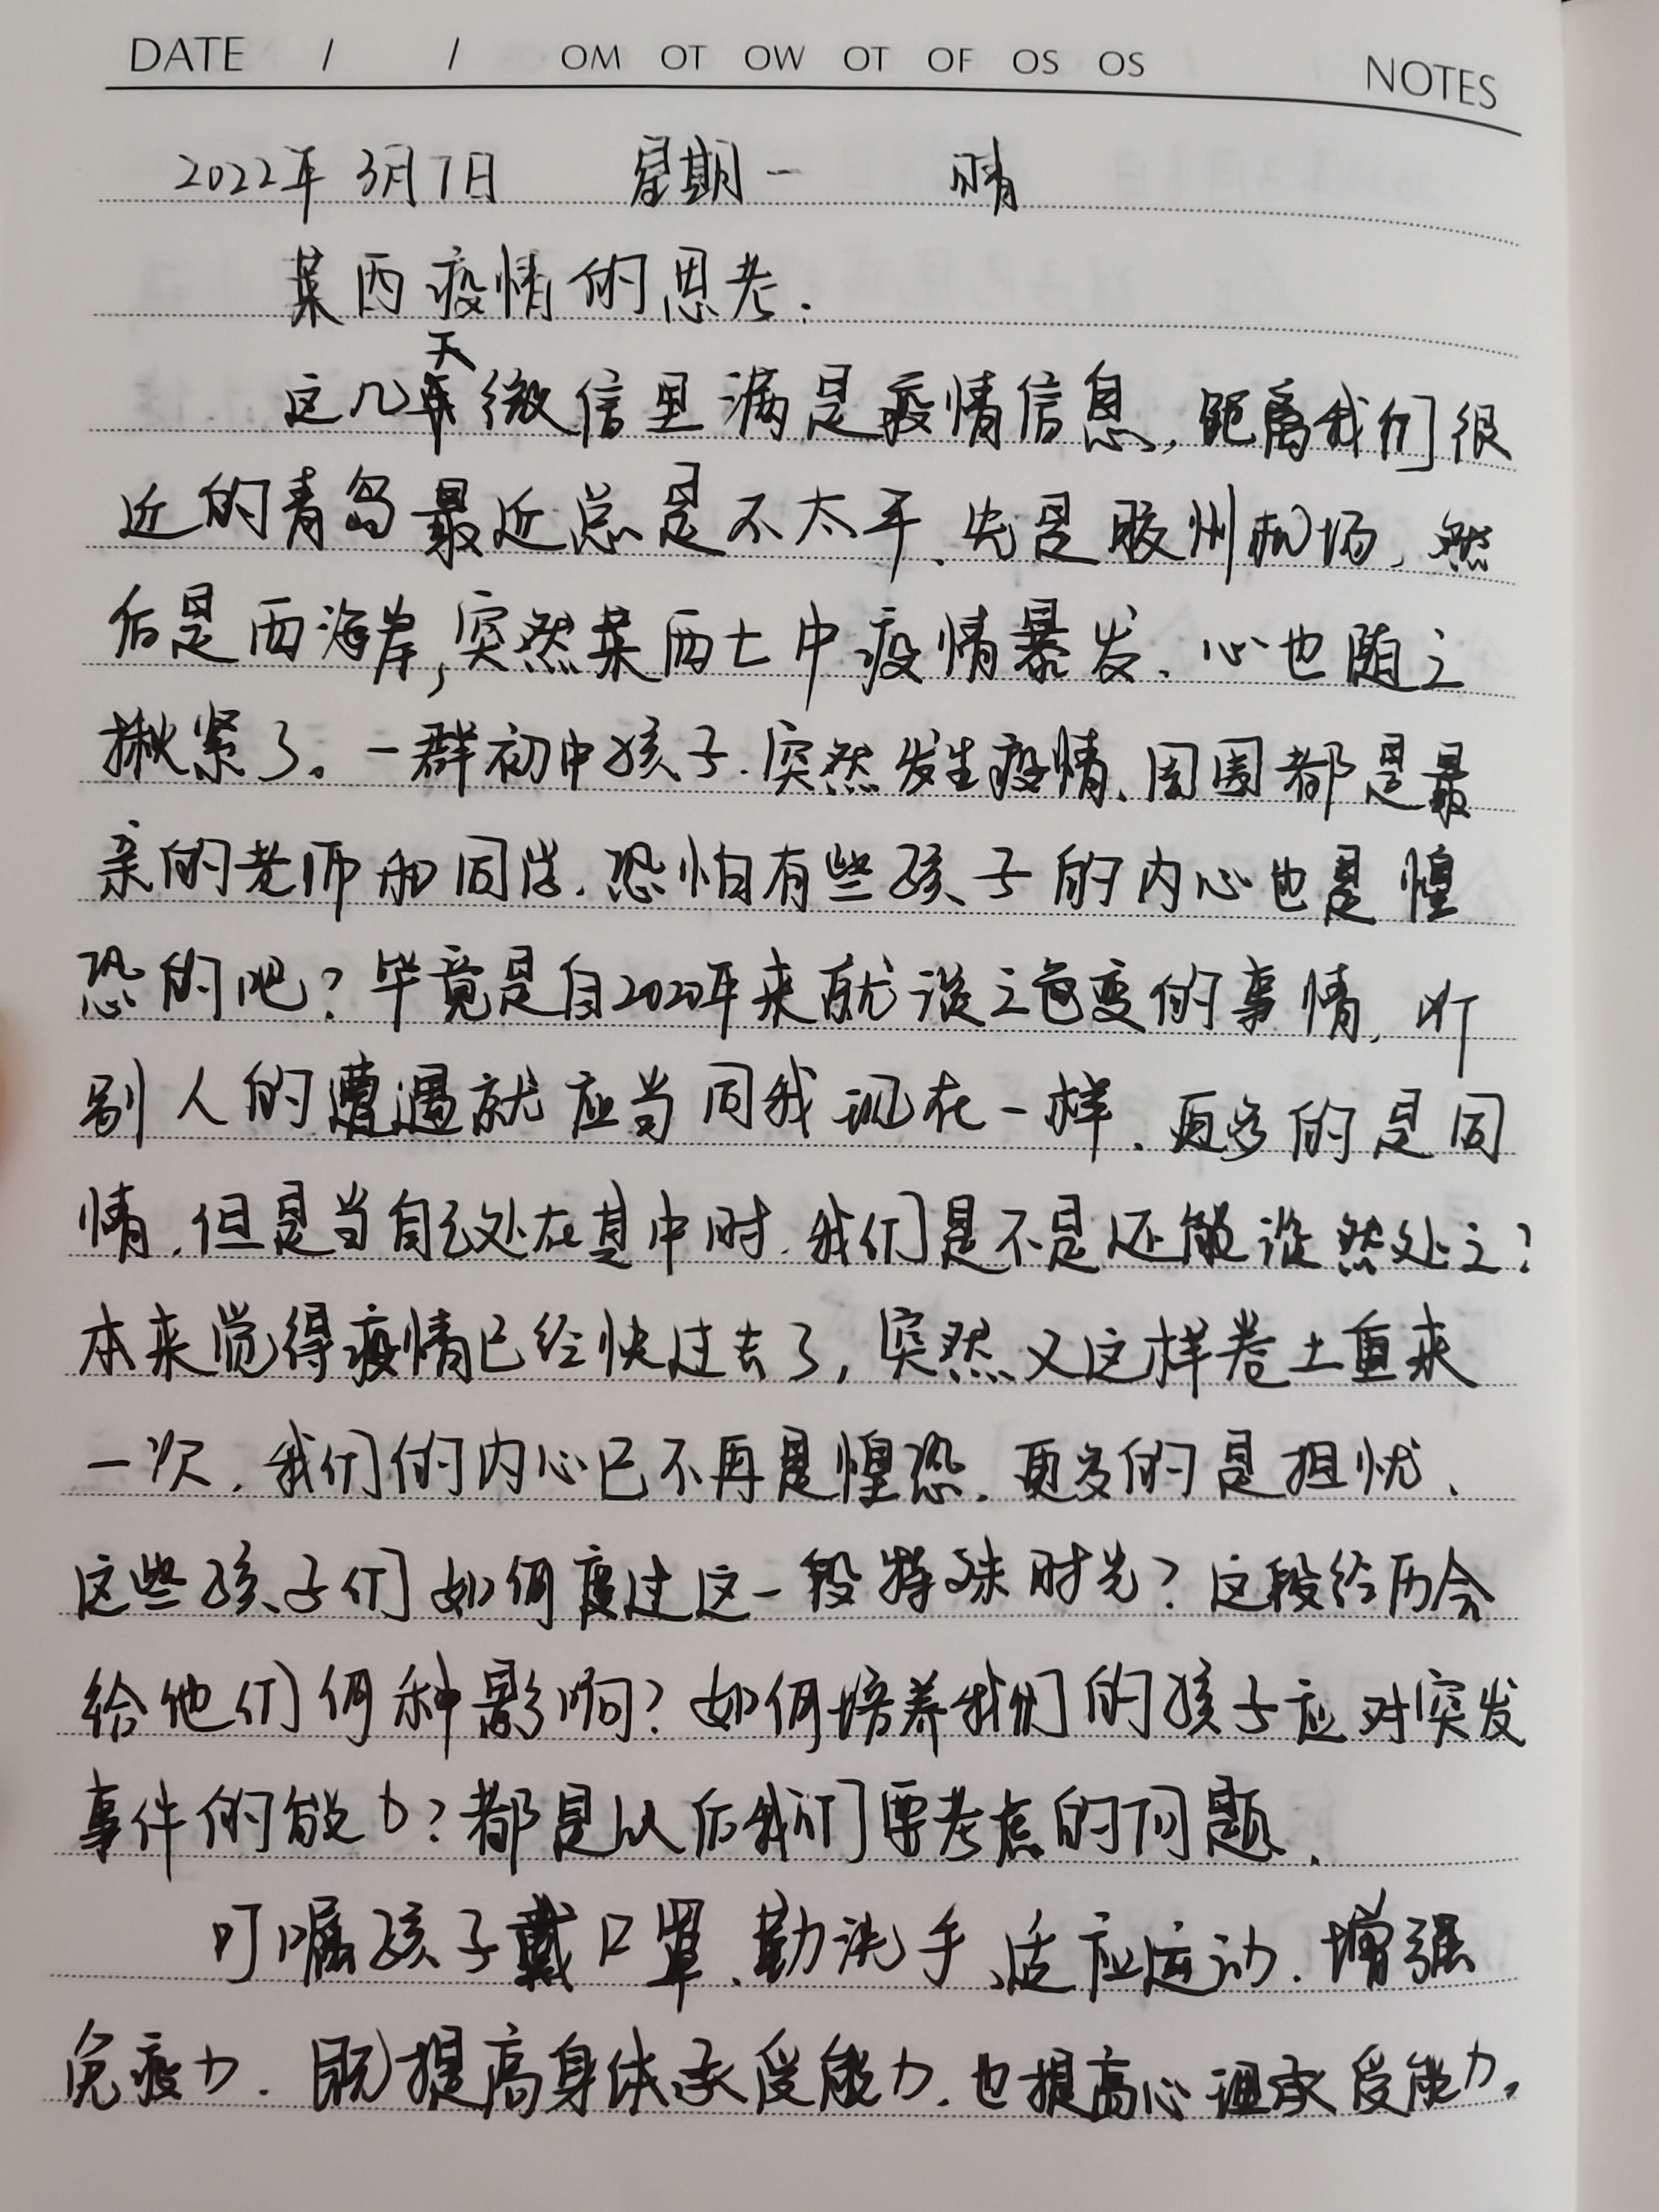 DATE / / OM OT OW OT OF OS OS NOTES
2022年3月7日 星期一 晴
莱西疫情的思考.
这几天微信里满是疫情信息,距离我们很
近的青岛最近总是不太平、先是胶州机场,然
后是西海岸,突然莱西七中疫情暴发、心也随之
揪紧了。一群初中孩子.突然发生疫情、周围都是最
亲的老师和同学.恐怕有些孩子的内心也是惶
恐的吧?毕竟是自2020年来就谈之色变的事情,听
别人的遭遇就应当同我现在一样、更多的是同
情.但是当自己处在其中时.我们是不是还能淡然处之?
本来觉得疫情已经快过去了,突然又这样卷土重来
一次.我们的内心已不再是惶恐.更多的是担忧、
这些孩子们如何度过这一段特殊时光?这段经历会
给他们何种影响?如何培养我们的孩子应对突发
事件的能力?都是以后我们要考虑的问题.
叮嘱孩子戴口罩、勤洗手、适应运动.增强
免疫力.既提高身体承受能力.也提高心理承受能力,